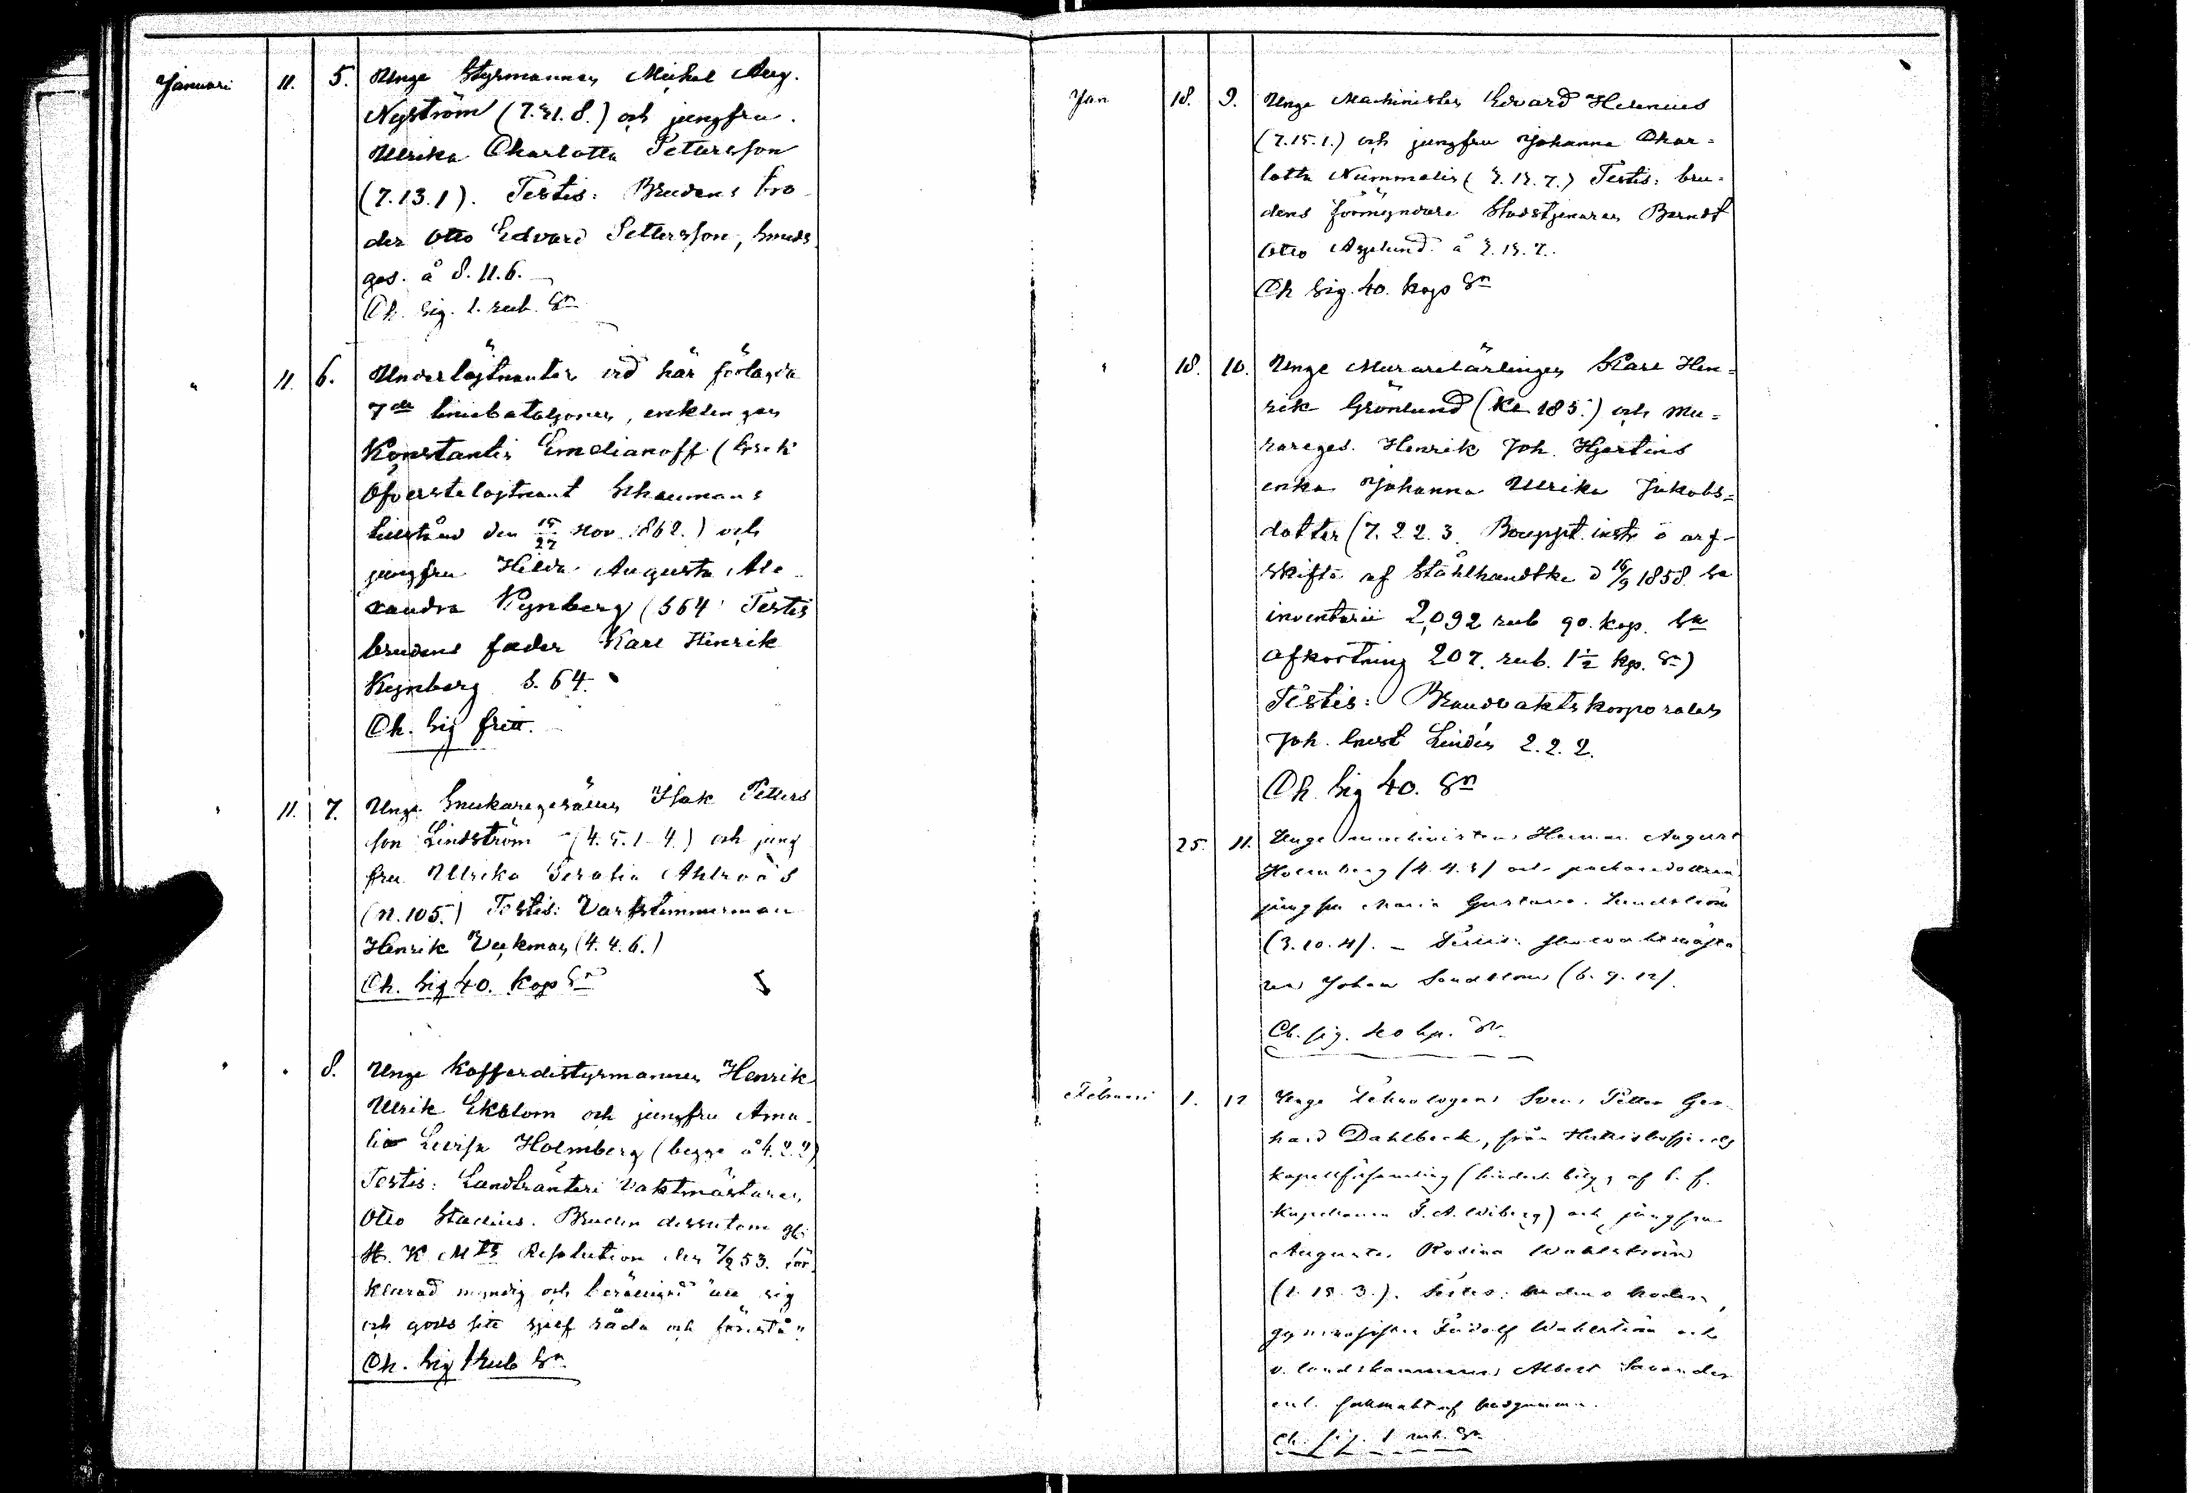 Januari 11. 5. Unge Styrmannen Mickel Aug.
Nyström (7.21.8.) och jungfru
Ulrika Charlotta Pettersson
(7.13.1). Testis: Brudens bro
der Otto Edvard Pettersson, smeds
ges. å 8.11.6.
Ch. Sig. 1. rub. Sr
" 11. 6. Underlöjtnanten vid här förlagda
7de liniebataljonen, enklingen
Konstantin Emelianoff (
Öfverstelöjtnant Schaumans
tillstånd den 15/27 Nov. 1862.) och
jungfru Hilda Augusta Ale
xandra Kynberg (S64 Testis
brudens fader Karl Henrik
Kynberg S. 64.
Ch. Sig fritt.
" 11. 7. Unge Snickaregesällen Isak Petters
son Lindström (4.5.1-4.) och jung
fru Ulrika Serafia Ahlroos
(N. 105.) Testis: Varfstimmerman
Henrik Veckman (4.4.6.)
Ch. Sig 40. Kop Sr
" " 8. Unge Koffardistyrmannen Henrik
Ulrik Ekblom och jungfru Ama
lia Lovisa Holmberg (begge å 4.2.2)
Testis: Landtränteri Vaktmästaren
Otto Stadius. Bruden dessutom
H. K Mts Resolution den 7/2 53. för
klarad myndig och berättigad att sig
och gods sitt sjelf råda och förestå"
Ch. Sig 1 rub Sr.
Jan 18. 9. Unge Machinisten Edvard Helenius
(7.15.1.) och jungfru Johanna Char=
lotta Nummelin ( 2.15.7.) Testis: bru-
dens förmyndare Stadstjenaren Berndt
Otto Asplund å 2.15.7.
Ch Sig. 40. kop Sr
" 18. 10. Unge Murarelärlingen Karl Hen=
rik Grönlund (Kb 185.) och Mu=
rareges. Henrik Joh. Hjertins
enka Johanna Ulrika Jakobs=
dotter (7.22.3. Bouppt. instr o arf-
skifte af Stålhandtke d 16/9 1858. Sa
inventarii 2,092 rub 90. kop. Sa
afkortning 207. rub. 1½ kop. Sr)
Testis: Brandvaktskorporalen
Joh. Ernst Lindén 2.2.2.
Ch. Sig 40. Sr
25. 11. Unge machinisten Herman August
Holmberg (4.4.3) och
jungfru Maria Gustava Lundström
(3.10.4). – Testis:
ren Johan Sandblom (6.9.12).
Ch. sig. 40 kp. Sr.
Februari 1. 12 Unge Technologen Sven Petter Ger
hard Dahlbeck, från
kapellförsamling (hinderb. betyg af b. f.
Kapellanen F. A. Wiberg) och jungfru
Augusta Rosina Wahlström
(1.15.3.). Testes: brudens broder,
gymnasisten Fridolf Wahlström och
v. landskammrer Albert Savander
enl. fullmakt af brudgummen.
Ch. sig. 1 rub. Sr.